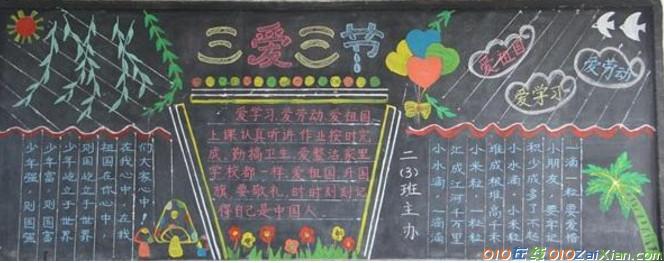 三爱三节
爱祖国
爱学习
爱劳动
爱学习,爱劳动,爱祖国,
上课认真听讲,作业按时完
成,勤搞卫生,爱整洁,家里
学校都一样,爱祖国,升国
旗,要敬礼,时时刻刻记
得自己是中国人。
二(3)班主办
一滴一粒要爱惜
小朋友,要牢记
积少成多了不起
小水滴,小米粒
堆成粮堆高千米
小米粒,一粒粒
汇成江河千万里
小水滴,一滴滴
们大家心中!
在我心中,在我
祖国在你心中,
则国屹立于世界
少年屹立于世界
少年富,则国富
少年强,则国强
010在线 010ZaiXian.Com